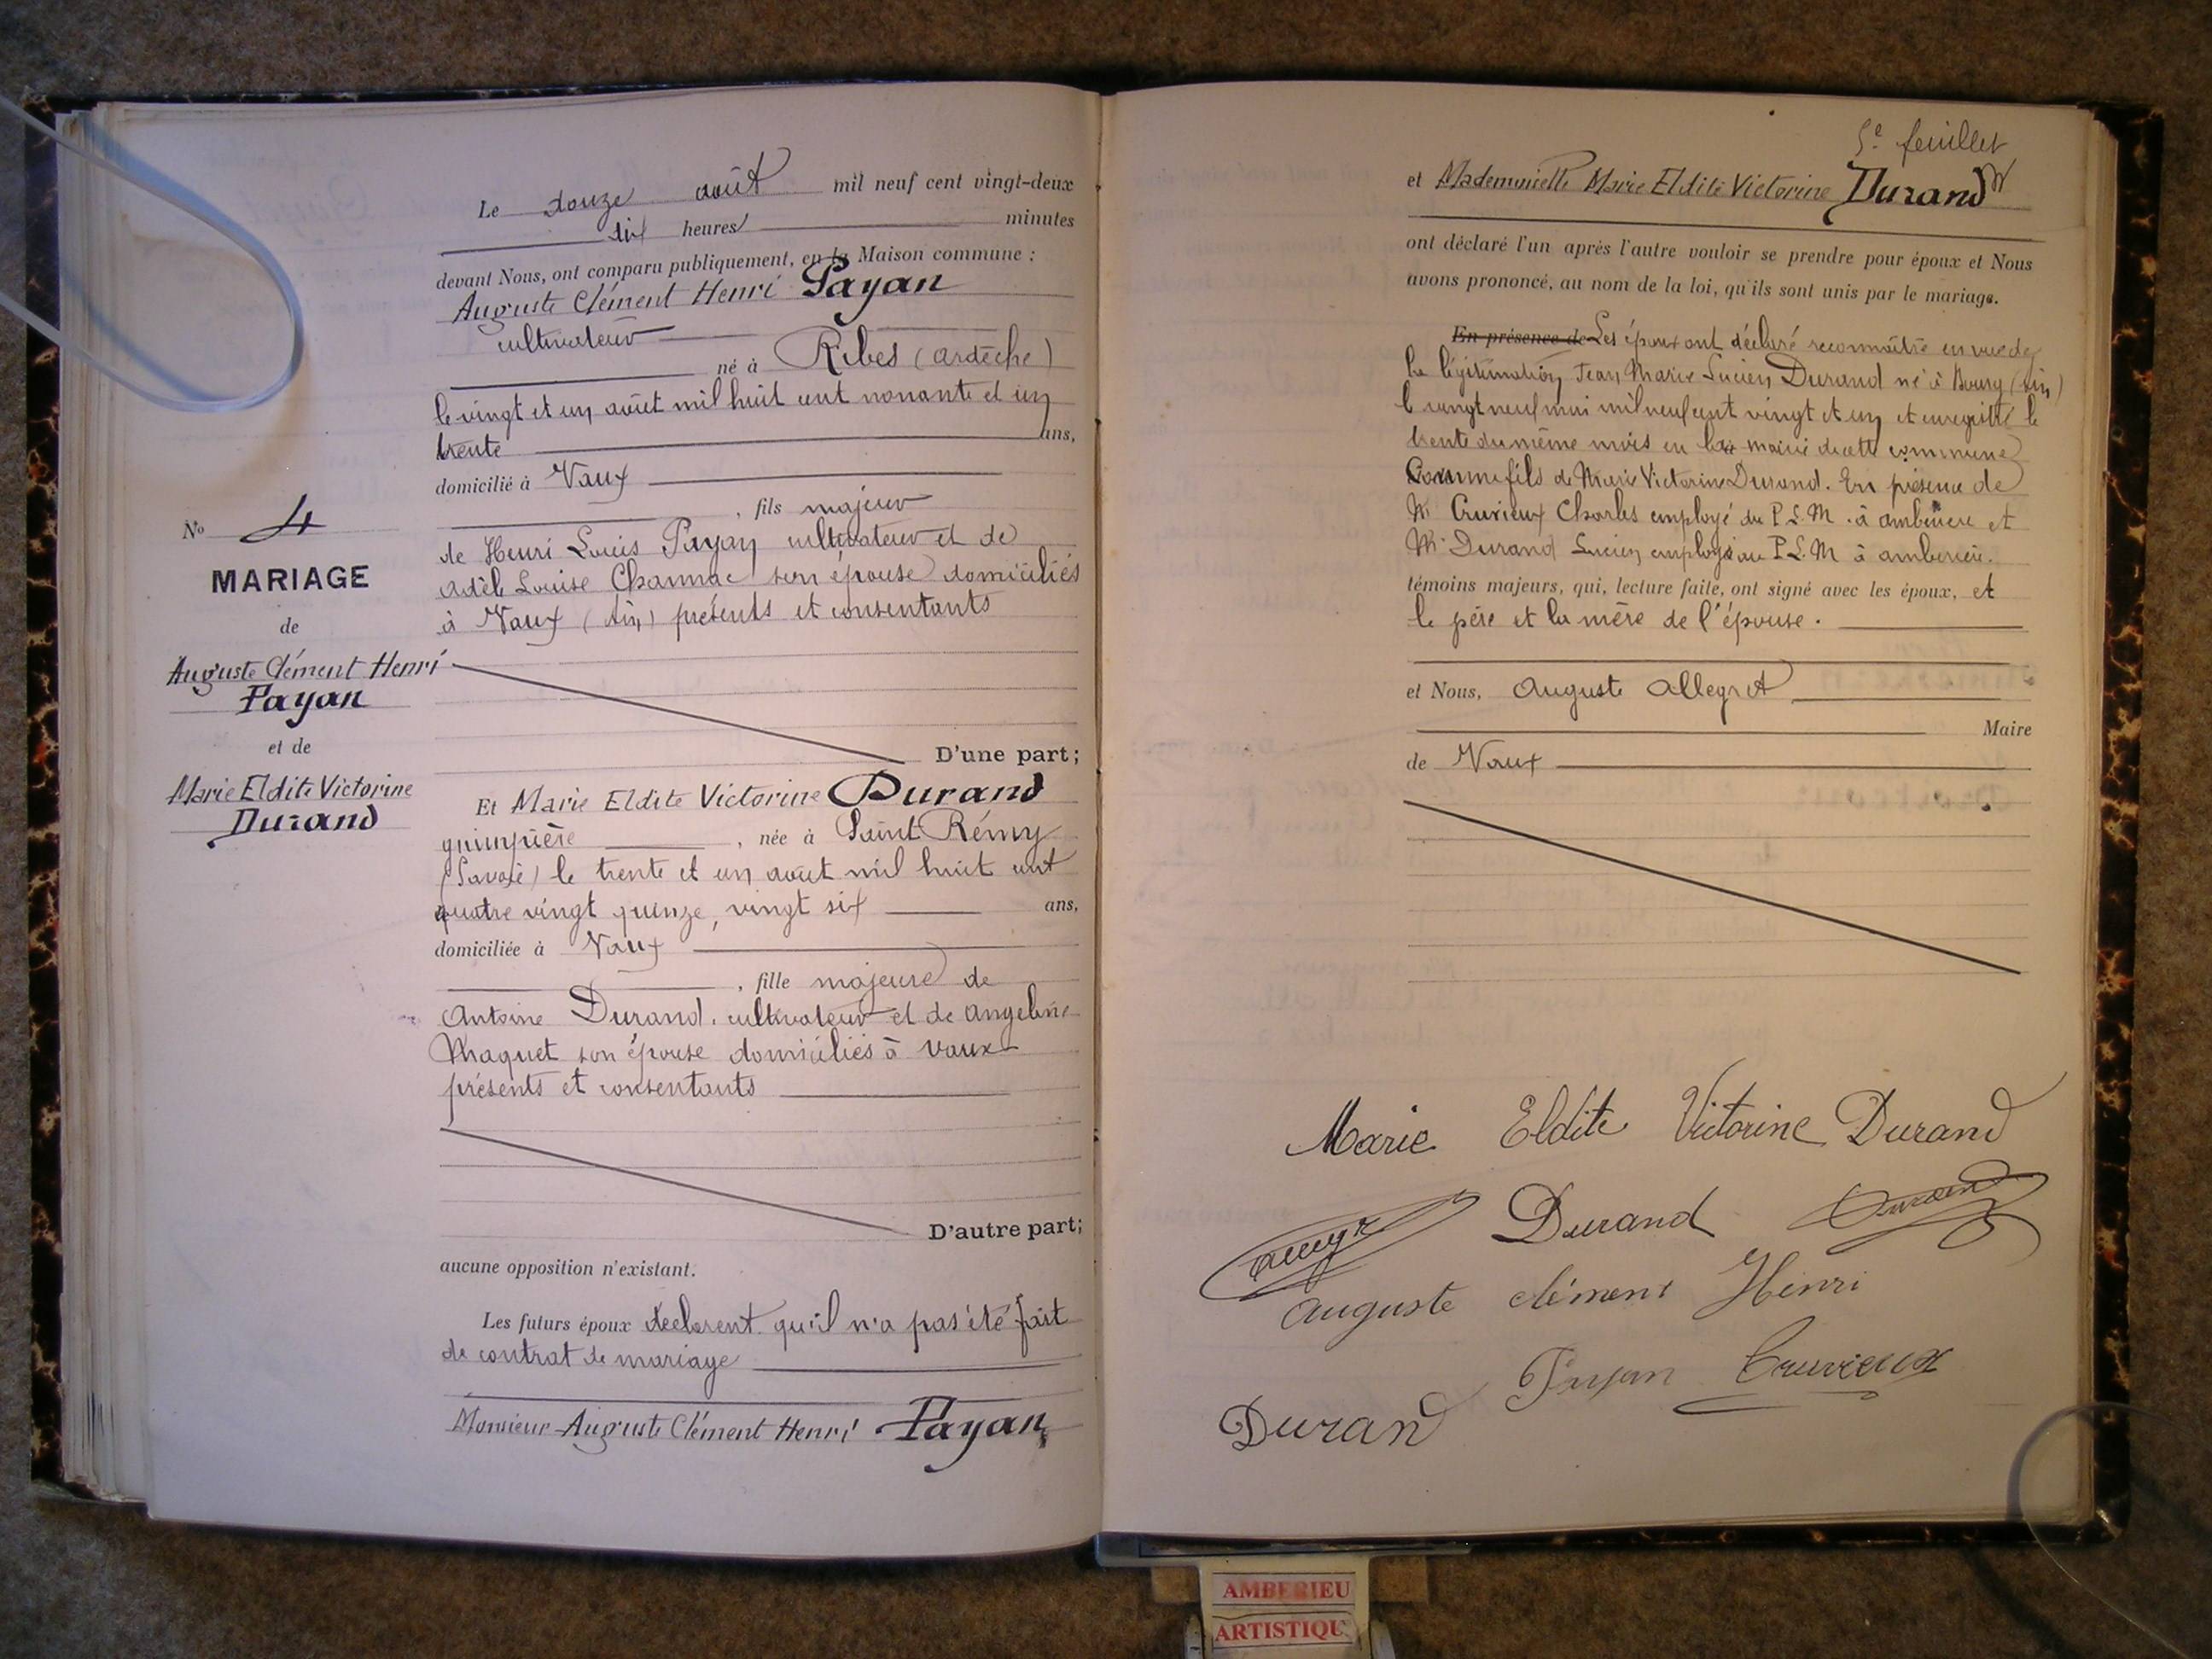 Le douze août mil neuf cent vingt-deux
dix heures minutes
devant Nous, ont comparu publiquement, en la Maison commune :
Auguste Clément Henri Payan
cultivateur
né à Ribes (Ardèche)
le vingt et un août mil huit cent nonante et un
trente ans,
domicilié à Vaux
, fils majeur
de Henri Louis Payan cultivateur et de
Adèle Louise Channac son épouse domiciliés
à Vaux (Ain) présents et consentants
D'une part;
Et Marie Eldite Victorine Durand
guimpière , née à Saint Rémy
(Savoie) le trente et un août mil huit cent
quatre vingt quinze, vingt six ans,
domiciliée à Vaux
, fille majeure de
Antoine Durand, cultivateur et de Angeline
Maquet son épouse domiciliés à Vaux
présents et consentants
D'autre part;
aucune opposition n'existant.
Les futurs époux declarent qu'il n'a pas été fait
de contrat de mariage
Monsieur Auguste Clément Henri Payan
No 4
MARIAGE
de
Auguste Clément Henri
Payan
et de
Marie Eldite Victorine
Durand
5e feuillet
et Mademoiselle Marie Eldite Victorine Durand
ont déclaré l'un après l'autre vouloir se prendre pour époux et Nous
avons prononcé, au nom de la loi, qu'ils sont unis par le mariage.
En présence de Les époux ont déclaré reconnaître en vue de
la légitimation, Jean Marie Lucien Durand né à Bourg (Ain)
le vingt neuf mai mil neuf cent vingt et un et enregistré le
trente du même mois en la mairie de cette commune
comme fils de Marie Victorine Durand. En présence de
Mr Cruvieux Charles employé du P.L.M. à Ambérieu et
Mr Durand Lucien employé au P.L.M à Ambérieu.
témoins majeurs, qui, lecture faite, ont signé avec les époux, et
le père et la mère de l'épouse.
et Nous, Auguste Allegret
Maire
de Vaux
Marie Eldite Victorine Durand
Durand Durand
Auguste clément Henri
Payan Cruvieux
Durand
AMBERIEU
ARTISTIQU